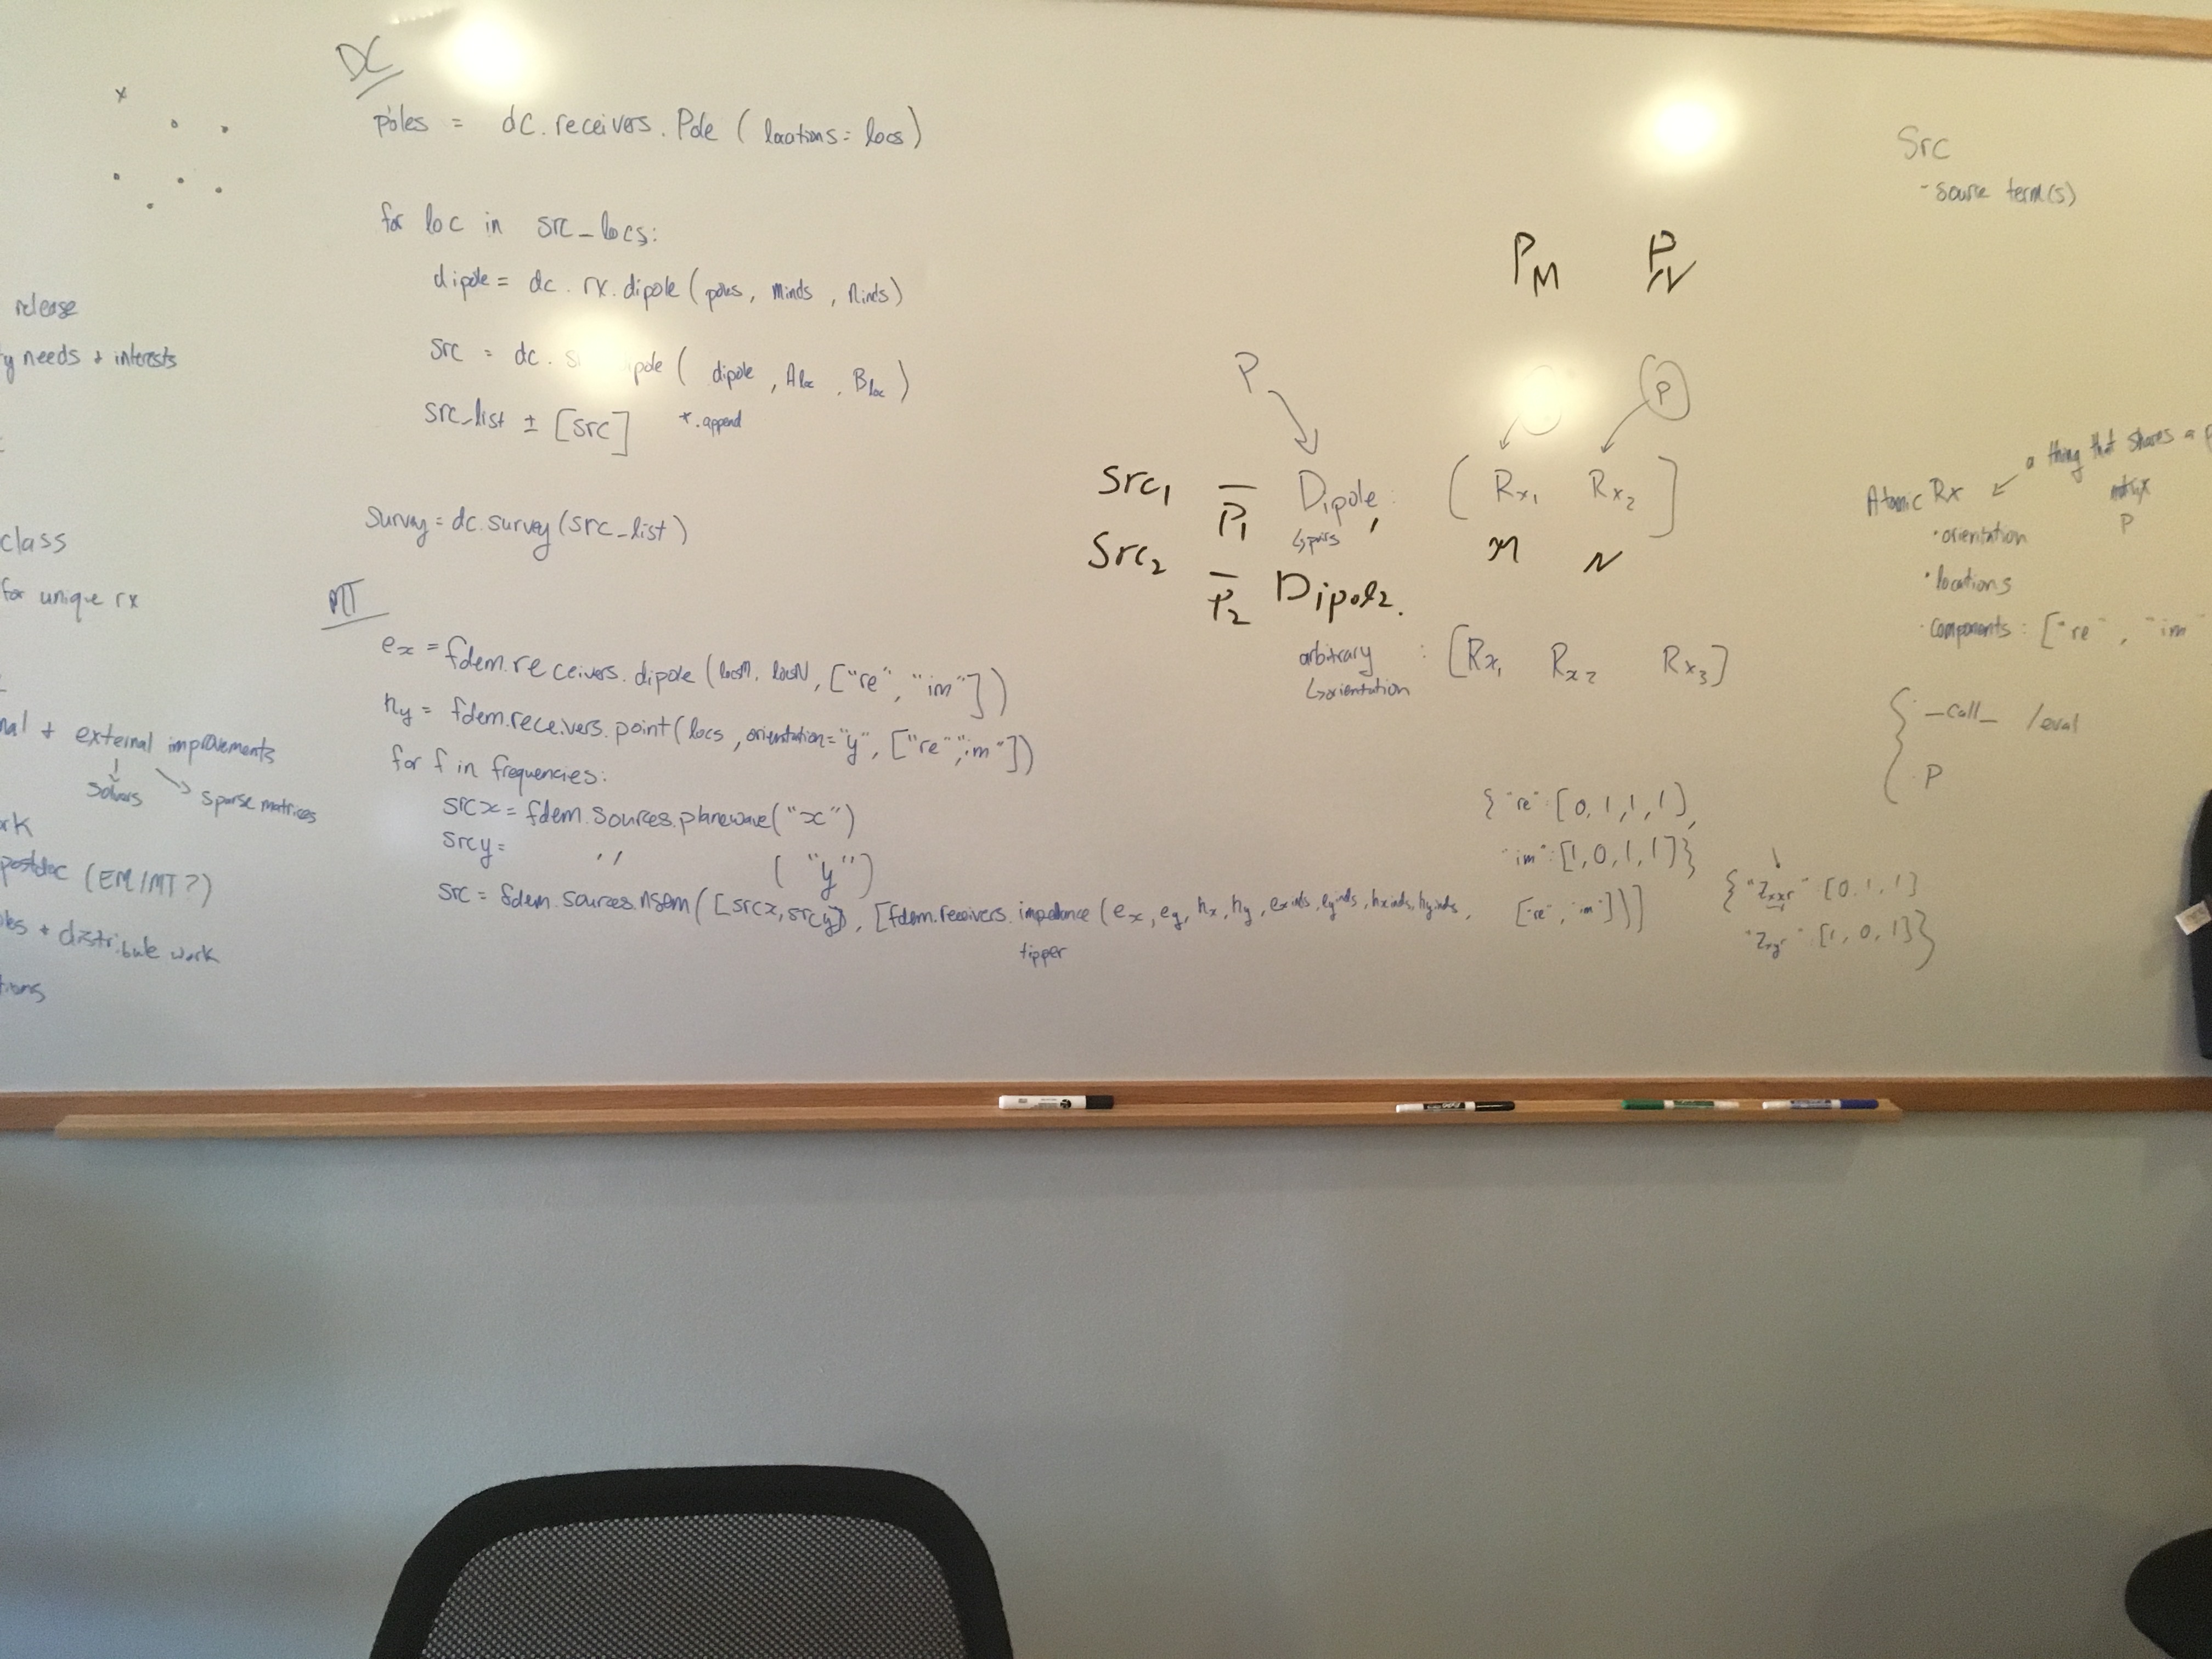 DC
poles = dc.receivers.Pole ( locations = locs )
for loc in src_locs:
dipole = dc.rx.dipole ( poles, minds, ninds )
src = dc. ( dipole, Aloc, Bloc )
src_list ± [src] *.append
survey = dc.survey(src_list)
MT
ex = fdem.receivers.dipole (locsM, locsN, ["re", "im"])
hy = fdem.receivers.point(locs, orientation="y", ["re", "im"])
for f in frequencies:
srcx = fdem.sources.planewave("x")
srcy = '' ("y")
src = fdem.sources.nsem([srcx, srcy], [fdem.receivers.impedance (ex, ey, hx, hy, exinds, eyinds, hxinds, hyinds, ["re", "im"])]
tipper
release
needs + interests
class
for unique rx
+ external improvements
solvers
sparse matrices
postdoc (EM/MT?)
+ distribute work
PM PN
P
P
Src1 P1 Dipole : [ Rx1 Rx2 ]
↳ pairs
M N
Src2 P2 Dipole2.
arbitrary : [Rx1 Rx2 Rx3]
↳ orientation
{ "re" : [0, 1, 1, 1],
"im" : [1, 0, 1, 1]}
{ "Zxxr" : [0, 1, 1]
"Zxyr" : [1, 0, 1]}
Src
- source term(s)
a thing that shares a
Atomic Rx
P
· orientation
· locations
· components : ["re", "im"
_call_ /eval
· P